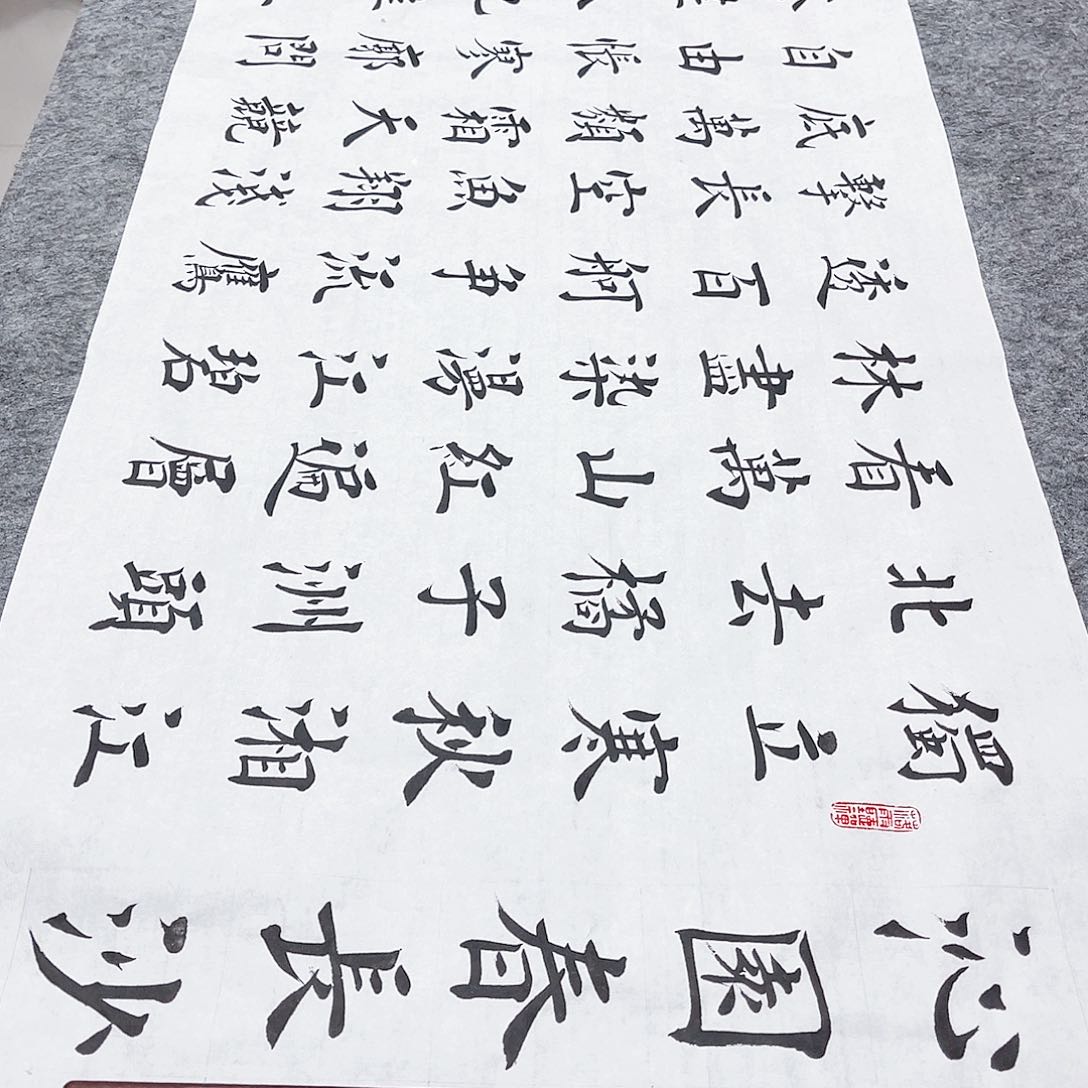 沁園春長沙
獨立寒秋湘江
北去橘子洲頭
看萬山紅遍層
林盡染漫江碧
透百舸爭流鷹
擊長空魚翔淺
底萬類霜天競
自由悵寥廓問